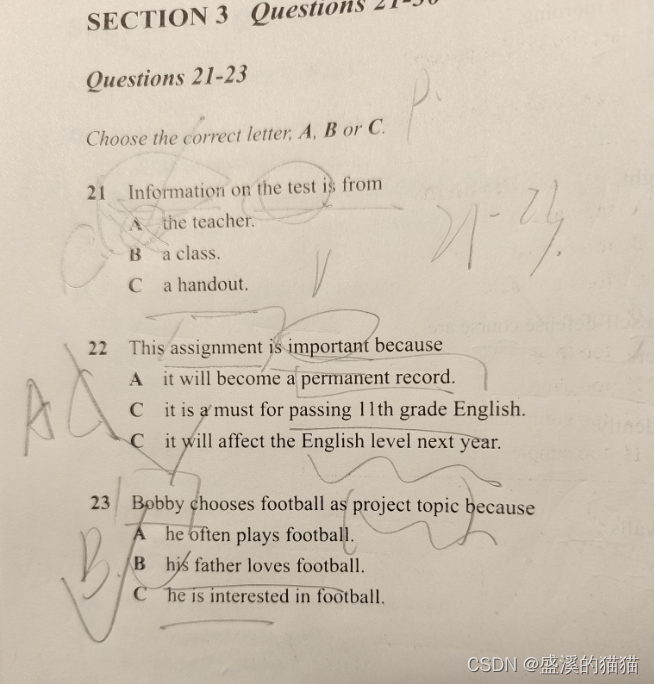 SECTION 3 Questions 21-30
Questions 21-23
Choose the correct letter, A, B or C.
P.
21 Information on the test is from
A the teacher.
B a class.
C a handout.
21-23.
22 This assignment is important because
A it will become a permanent record.
C it is a must for passing 11th grade English.
C it will affect the English level next year.
A
23 Bobby chooses football as project topic because
A he often plays football.
B his father loves football.
C he is interested in football.
B.
CSDN @盛溪的猫猫